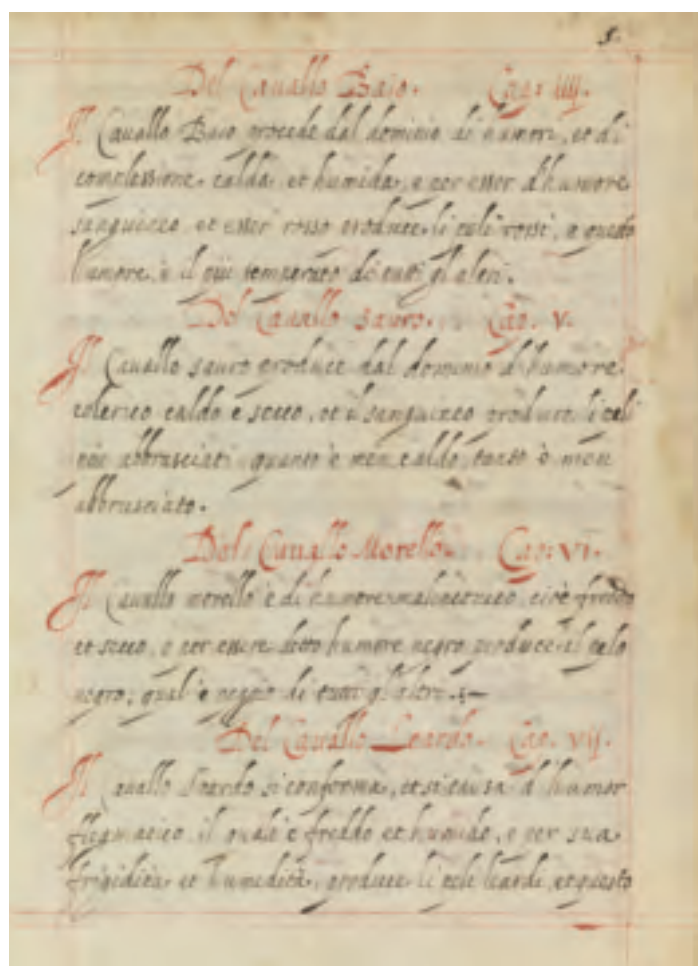 5.
Del Cavallo Baio. Cap. iiij.
Il Cavallo Baio procede dal dominio di humori, et di
complessione calda et humida, e per esser d'humore
sanguineo et esser rosso produce li peli rossi, e questo
humore è il più temperato di tutti gl'altri.
Del Cavallo sauro. Cap. V.
Il Cavallo sauro produce dal dominio d'humore
colerico caldo e secco, et il sanguineo produce li peli
più abbrusciati quanto è men caldo, tanto è men
abbrusciato.
Del Cavallo Morello. Cap. VI.
Il Cavallo morello è di humore cioè freddo
et secco, e per essere detto humore negro produce il pelo
negro, qual'è peggio di tutti gl'altri.
Del Cavallo Leardo. Cap. vij.
Il Cavallo Leardo si conforma, et si causa d'humor
flegmatico il quale è freddo et humido, e per sua
frigidità et humidità, produce li peli leardi, et questo